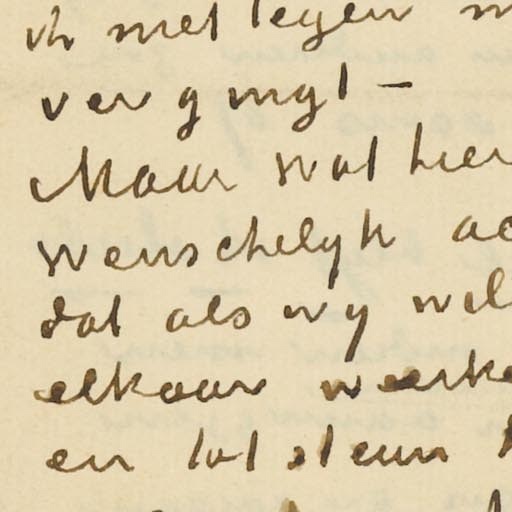 ik met tegen
vergingt –
Maar wat hier
wenschelijk ac
dat als wij wil
elkaar werke
en tot steun